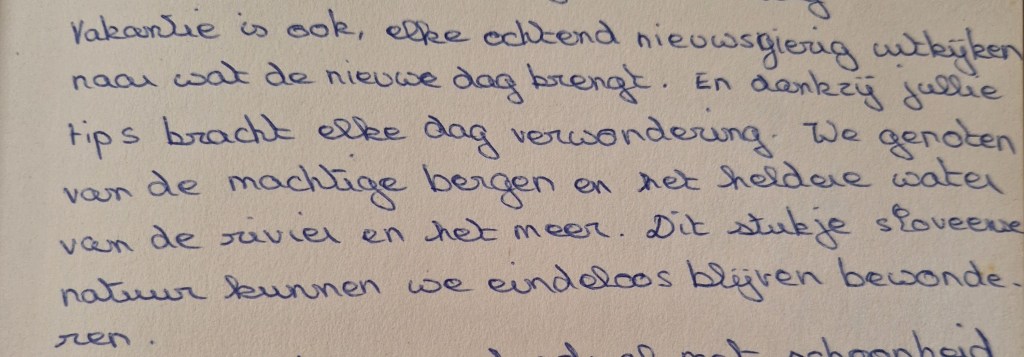 Vakantie is ook, elke ochtend nieuwsgierig uitkijken
naar wat de nieuwe dag brengt. En dankzij jullie
tips bracht elke dag verwondering. We genoten
van de machtige bergen en het heldere water
van de rivier en het meer. Dit stukje sloveense
natuur kunnen we eindeloos blijven bewonde-
ren.
met schoonheid